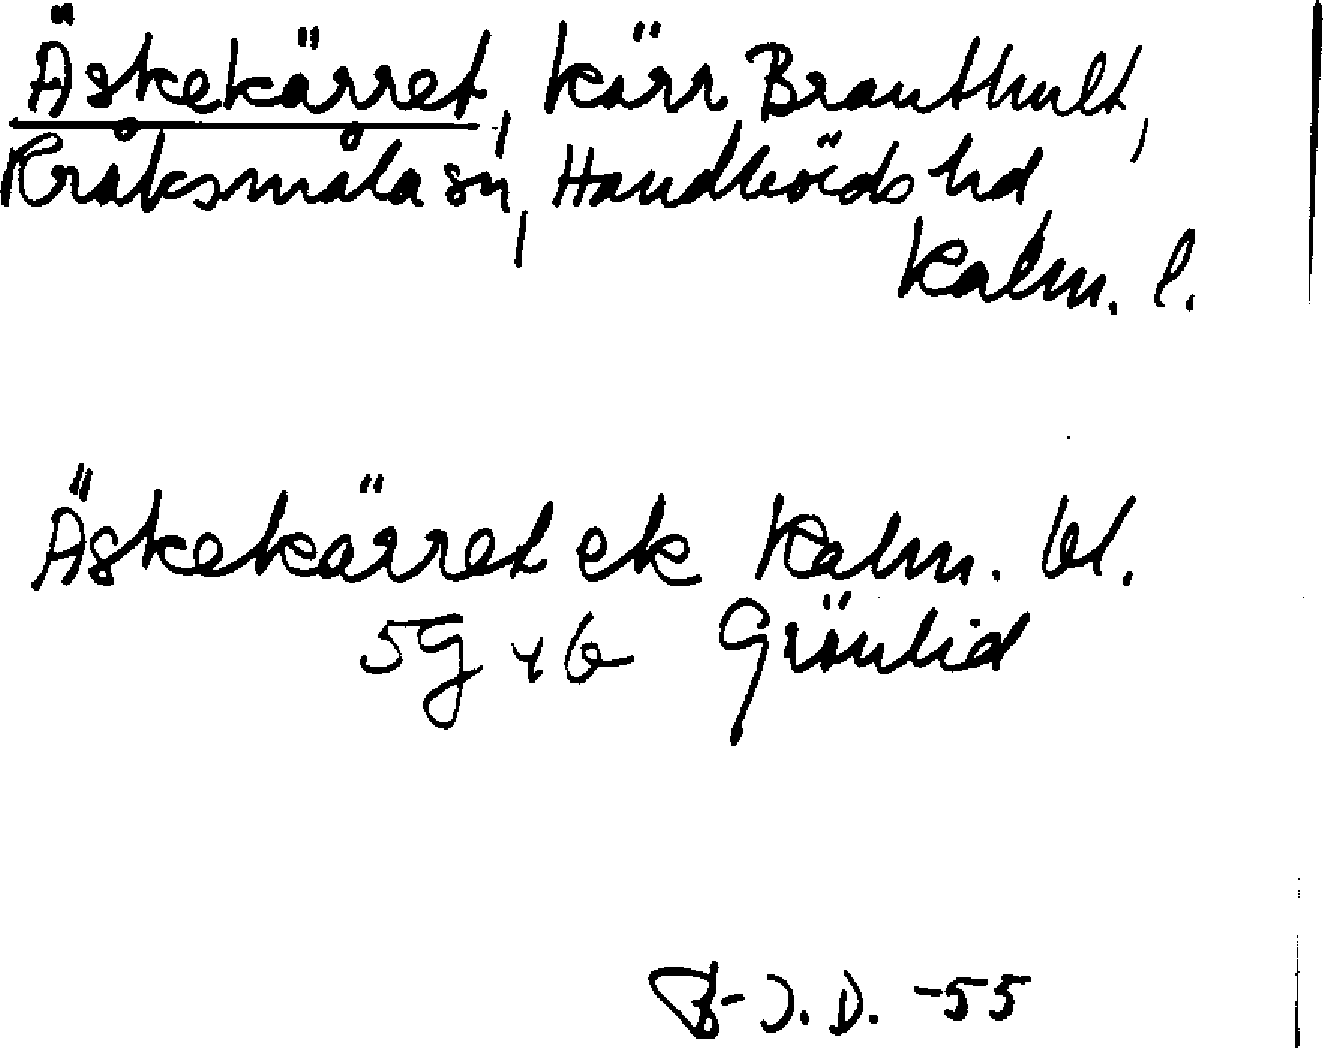 Äskekärret, kärr, Brauthult,
Kråksmåla sn, Handbörds hd
Kalm. l.
Äskekärret ek Kalm. bl.
5g + 6 Grönlid
J. D. -55